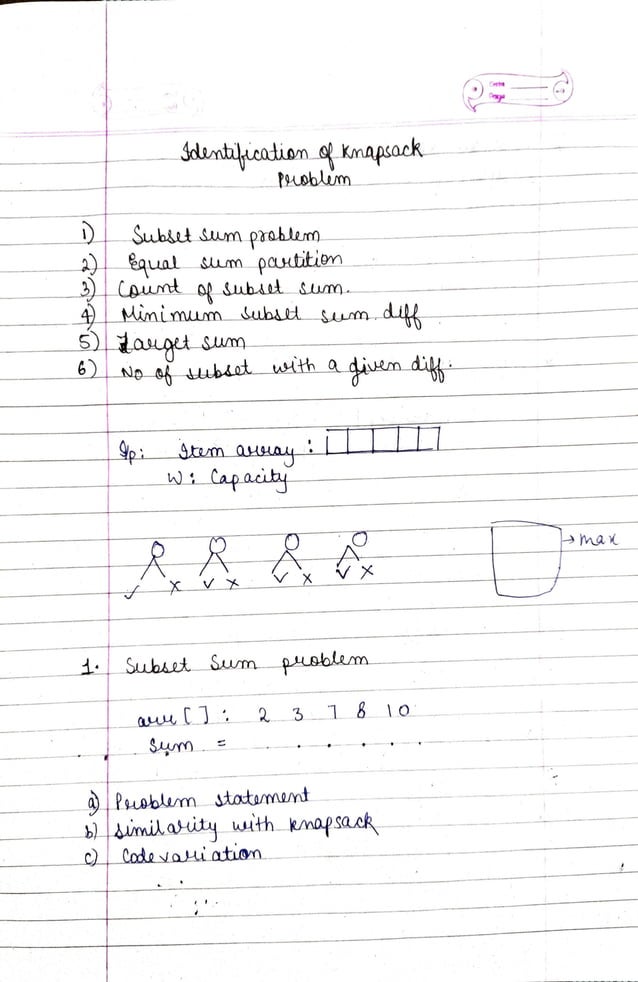 Identification of Knapsack
Problem
1) Subset sum problem
2) Equal sum partition
3) Count of subset sum.
4) Minimum subset sum diff
5) Target sum
6) No of subset with a given diff.
I/p: Item array :
W: Capacity
→ max
✓ x ✓ x ✓ x ✓ x
1. Subset Sum problem
arr [ ] : 2 3 7 8 10
Sum = . . . . . .
a) Problem statement
b) Similarity with knapsack
c) Code variation